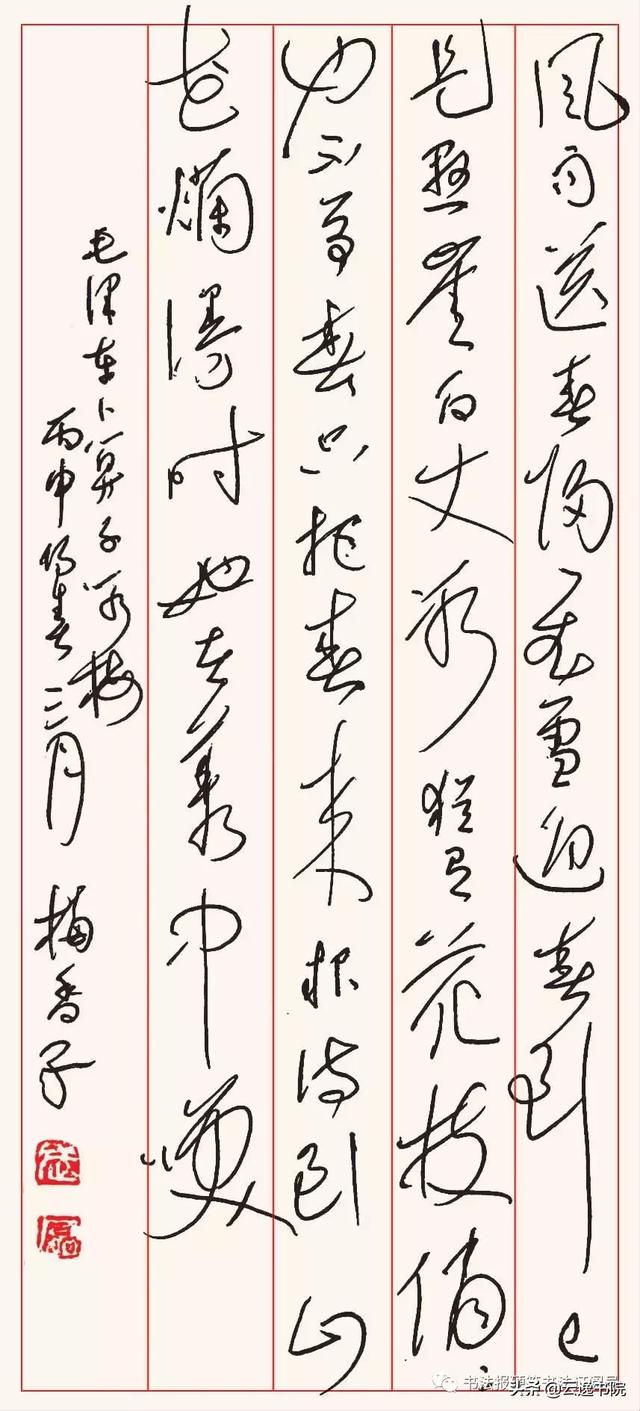 风雨送春归飞雪迎春到已
是悬崖百丈冰犹有花枝俏
也不争春只把春来报待到山
花爛漫时她在叢中笑
毛泽东卜算子咏梅
丙申阳春三月 梅香子
书法报硬笔书法
头条 @云逸书院